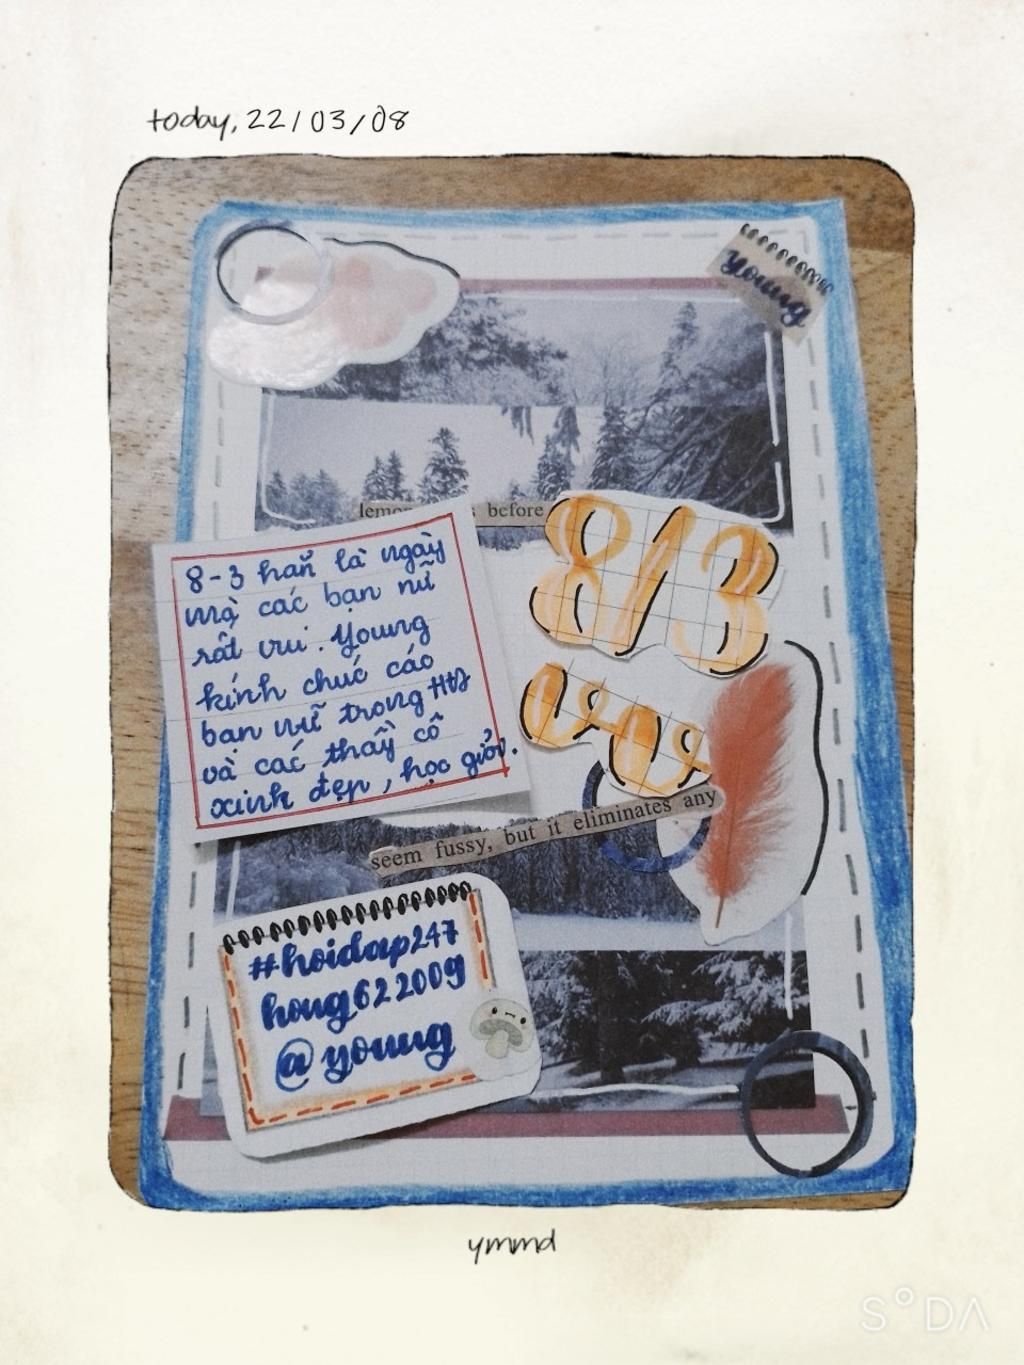 today, 22/03/08
young
lemon s before
8/3
vv
8-3 hẳn là ngày
mà các bạn nữ
rất vui. Young
kính chúc cáo
bạn nữ trong HĐ
và các thầy cô
xinh đẹp, học giỏi.
seem fussy, but it eliminates any
#hoidap247
hong622009
@young
ymmd
SODA